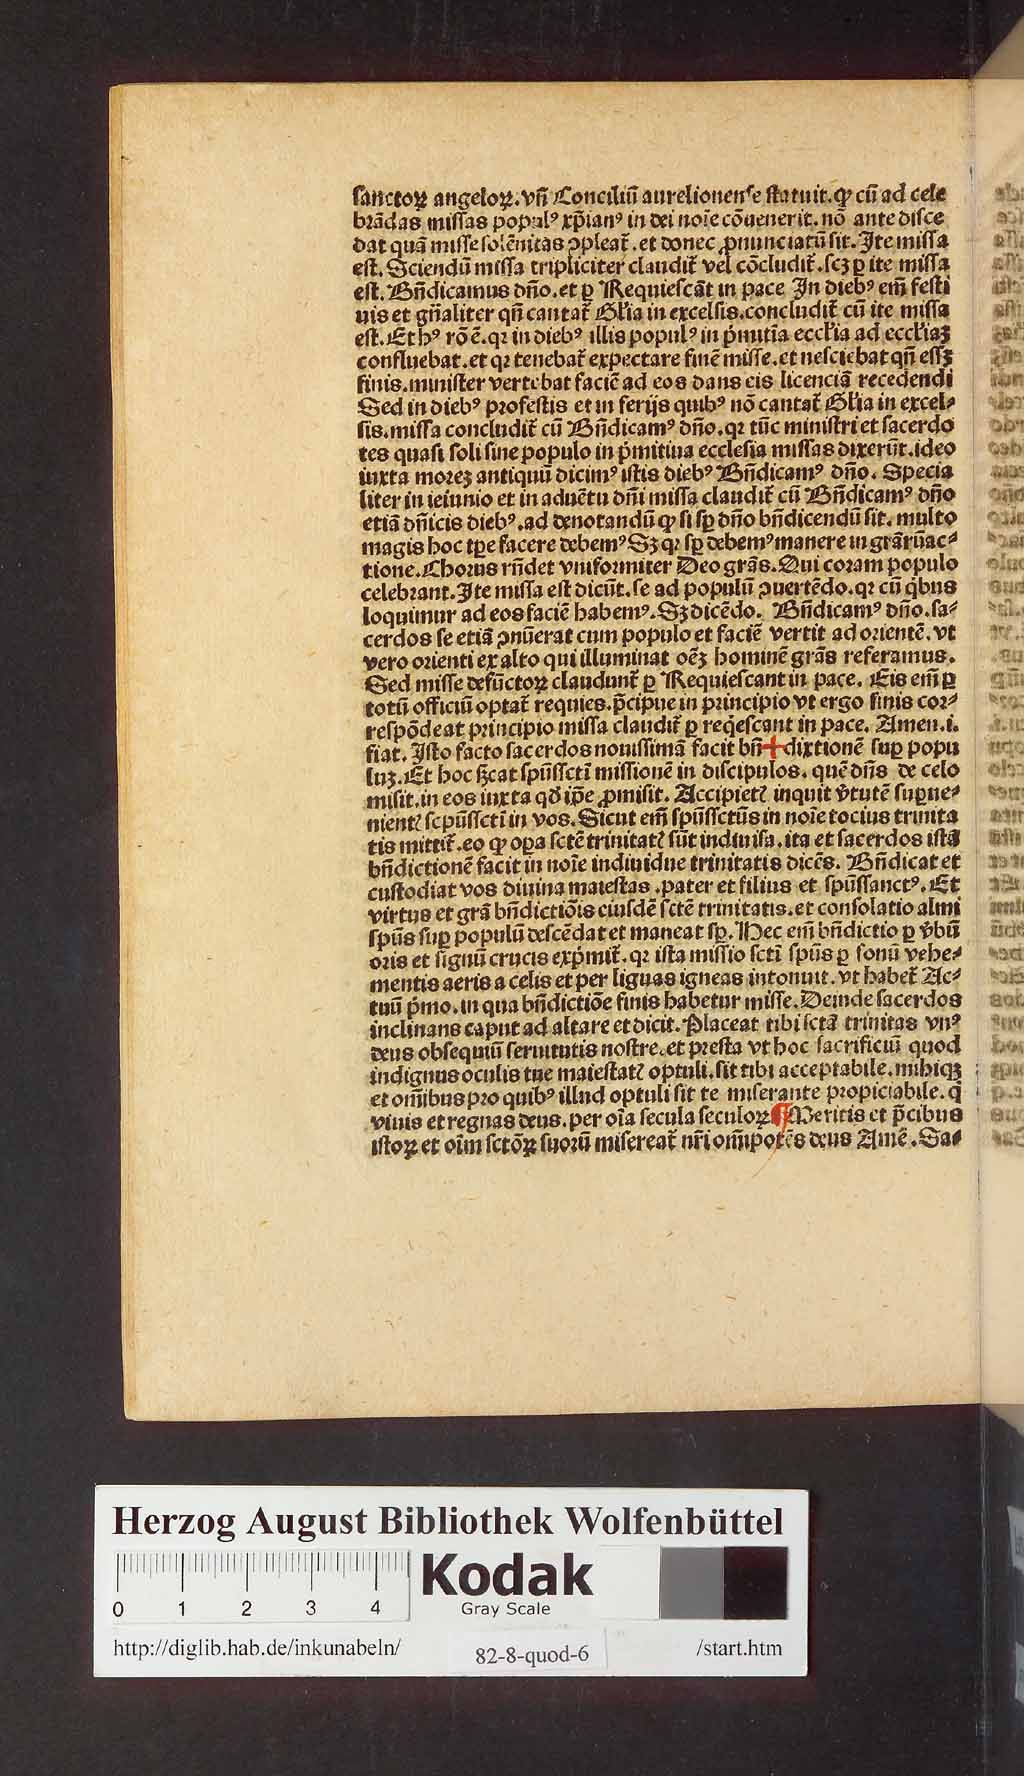 sanctoꝝ angeloꝝ. vñ Conciliū aurelionense statuit. ꝙ cū ad cele
brādas missas popul⁹ xp̄ian⁹ in dei noīe cōuenerit. nō ante disce
dat quā misse solēnitas ꝯpleat̃. et donec ꝓnunciatū sit. Ite missa
est. Sciendū missa tripliciter claudit̃ vel cōcludit̃. scꝫ ꝑ ite missa
est. Bn̄dicamus dn̄o. et ꝑ Requiescāt in pace In dieb⁹ em̄ festi
uis et gn̄aliter qn̄ cantat̃ Gl̄ia in excelsis. concludit̃ cū ite missa
est. Et h⁹ rō ē. qꝛ in dieb⁹ illis popul⁹ in p̄mitīa eccl̄ia ad eccl̄iaꝫ
confluebat. et qꝛ tenebat̃ expectare finē misse. et nesciebat qn̄ essꝫ
finis. minister vertebat faciē ad eos dans eis licenciā recedendi
Sed in dieb⁹ profestis et in ferijs quib⁹ nō cantat̃ Gl̄ia in excel⸗
sis. missa concludit̃ cū Bn̄dicam⁹ dn̄o. qꝛ tūc ministri et sacerdo
tes quasi soli sine populo in p̄mitiua ecclesia missas dixerūt. ideo
iuxta moreꝫ antiquū dicim⁹ istis dieb⁹ Bn̄dicam⁹ dn̄o. Specia
liter in ieiunio et in aduētu dn̄i missa claudit̃ cū Bn̄dicam⁹ dn̄o
etiā dn̄icis dieb⁹. ad denotandū ꝙ si sꝑ dn̄o bn̄dicendū sit. multo
magis hoc tp̄e facere debem⁹ Sꝫ qꝛ sꝑ debem⁹ manere in grāꝝ ac⸗
tione. Chorus rn̄det vniformiter Deo grās. Qui coram populo
celebrant. Ite missa est dicūt. se ad populū ꝯuertēdo. qꝛ cū q̄bus
loquimur ad eos faciē habem⁹. Sꝫ dicēdo. Bn̄dicam⁹ dn̄o. sa⸗
cerdos se etiā ꝯnūerat cum populo et faciē vertit ad orientē. vt
vero orienti ex alto qui illuminat oēꝫ hominē grās referamus.
Sed misse defūctoꝝ claudunt̃ ꝑ Requiescant in pace. Eis em̄ ꝑ
totū officiū optat̃ requies. p̄cipue in principio vt ergo finis cor⸗
respōdeat principio missa claudit̃ ꝑ req̄escant in pace. Amen. i.
fiat. Isto facto sacerdos nouissimā facit bn̄✚dixtionē suꝑ popu
luꝫ. Et hoc sꝫcat spūssctī missionē in discipulos. quē dn̄s de celo
misit. in eos iuxta qd̄ ip̄e ꝓmisit. Accipietꝭ inquit v̄tutē suꝑue⸗
nientꝭ scpūssctī in vos. Sicut em̄ spūssctūs in noīe tocius trinita
tis mittit̃. eo ꝙ oꝑa sctē trinitatꝭ sūt indiuisa. ita et sacerdos istā
bn̄dictionē facit in noīe indiuidue trinitatis dicēs. Bn̄dicat et
custodiat vos diuina maiestas. pater et filius et spūssanct⁹. Et
virtus et grā bn̄dictiōis eiusdē sctē trinitatis. et consolatio almi
spūs suꝑ populū descēdat et maneat sꝑ. Hec em̄ bn̄dictio ꝑ v̄bū
oris et signū crucis exp̄mit̃. qꝛ ista missio sctī spūs ꝑ sonū vehe⸗
mentis aeris a celis et per liguas igneas intonuit. vt habet̃ Ac⸗
tuū p̄mo. in qua bn̄dictiōe finis habetur misse. Deinde sacerdos
inclinans caput ad altare et dicit. Placeat tibi sctā trinitas vn⁹
deus obsequiū seruitutis nostre. et presta vt hoc sacrificiū quod
indignus oculis tue maiestatꝭ optuli. sit tibi acceptabile. mihiqꝫ
et om̄ibus pro quib⁹ illud optuli sit te miserante propiciabile. q̄
viuis et regnas deus. per oīa secula seculoꝝ ¶ Meritis et p̄cibus
istoꝝ et oīm sctōꝝ suorū misereat̃ nr̄i om̄ipotēs deus Amē. Sa⸗
Herzog August Bibliothek Wolfenbüttel
0 1 2 3 4
Kodak
Gray Scale
http://diglib.hab.de/inkunabeln/ 82-8-quod-6 /start.htm